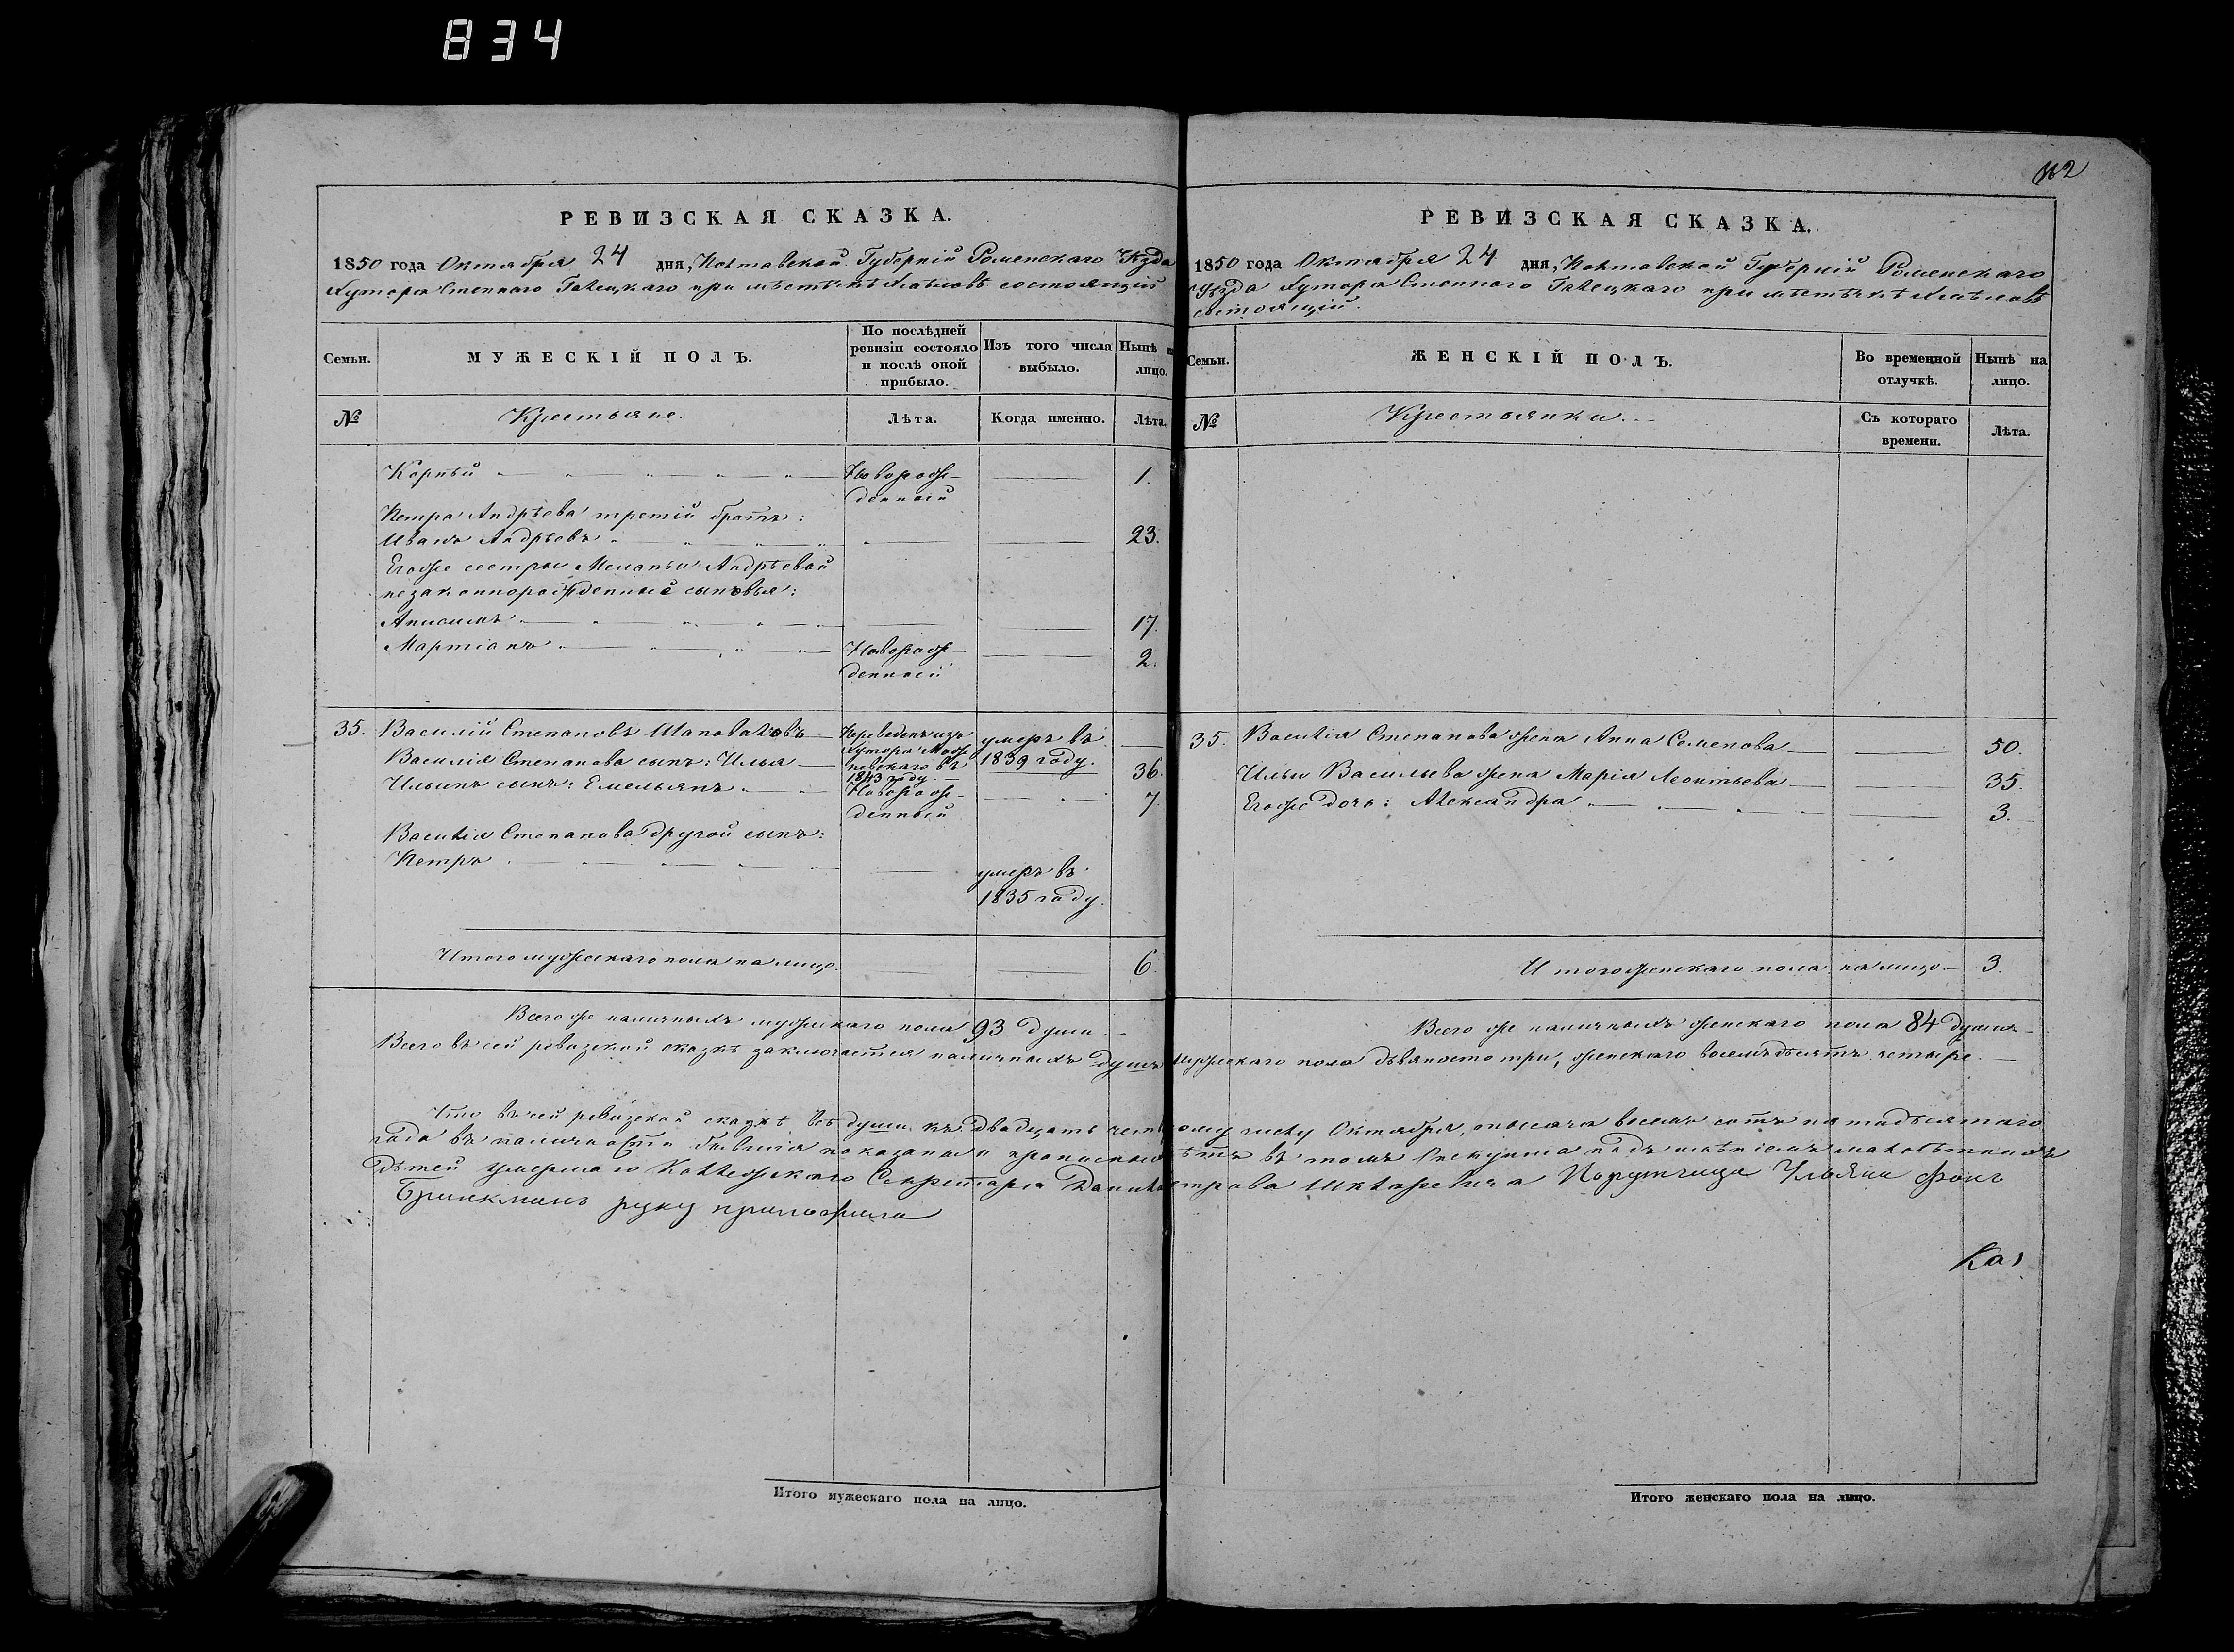 834
РЕВИЗСКАЯ СКАЗКА.
1850 года Октября 24 дня, Полтавской Губерніи Роменскаго Уѣзда
Хутора Степнаго Галецкаго при мѣстѣчкѣ Хмѣловѣ состоящій
Семьи.
МУЖЕСКІЙ ПОЛЪ.
По послѣдней ревизіи состояло и послѣ оной прибыло.
Изъ того числа выбыло.
Нынѣ на лицо.
№
Крестьяне.
Лѣта.
Когда именно.
Лѣта.
Корнѣй Новорож- 1.
денный
Петра Андрѣева третій братъ:
Иванъ Андрѣевъ 23.
Егоже сестры Меланьи Андрѣевой
незаконнорожденные сыновья:
Анисимъ 17.
Мартіанъ Новорож- 2.
денный
35. Василій Степановъ Шаповаловъ Переведенъ изъ Хутора невскаго въ 1843 году. умеръ въ 1839 году.
Василія Степанова сынъ: Илья 36.
Ильинъ сынъ: Емельянъ Новорож- 7.
денный
Василія Степанова другой сынъ:
Петръ умеръ въ
1835 году.
Итого мужескаго пола на лицо. 6.
Всего же наличныхъ мужескаго пола 93 души.
Итого мужескаго пола на лицо.
112
РЕВИЗСКАЯ СКАЗКА.
1850 года Октября 24 дня, Полтавской Губерніи Роменскаго
Уѣзда Хутора Степнаго Галецкаго при мѣстѣчкѣ Хмѣловѣ
состоящій.
Семьи.
ЖЕНСКІЙ ПОЛЪ.
Во временной отлучкѣ.
Нынѣ на лицо.
№
Крестьянки.
Съ котораго времени.
Лѣта.
35. Василія Степанова жена Анна Семенова 50.
Ильи Васильева жена Марія Леонтьева 35.
Егоже дочь: Александра 3.
Итого женскаго пола на лицо 3.
Всего же наличныхъ женскаго пола 84 души
Всего въ сей ревизской сказкѣ заключается наличныхъ душъ мужескаго пола дѣвяносто три, женскаго восемьдѣсятъ четыре.
Что въ сей ревизской сказкѣ всѣ души къ двадцать чет ому числу Октября, тысяча восемь сотъ пятидѣсятаго
года въ наличности бывшія показаны и прописных ѣтъ въ томъ Опекунша надъ имѣніемъ малолѣтныхъ
дѣтей умершаго Коллежскаго Секретаря Данила Петрова Шкларевича Порутчица Ульяна фонъ
Бринкманъ руку приложила
Ка
Итого женскаго пола на лицо.